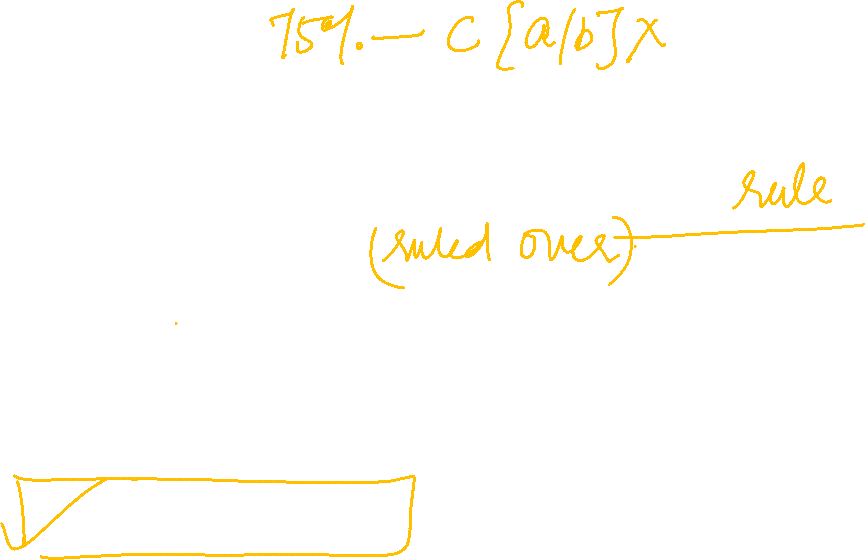 75% — C [a/b] X
rule
(ruled over)